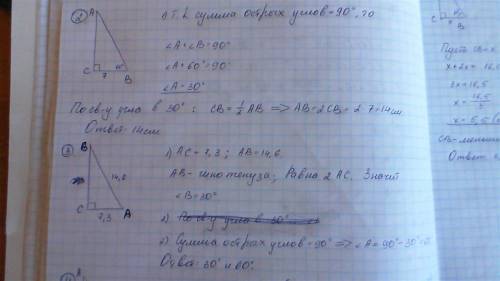 ② A
1) Т.к. сумма острых углов = 90°, то
∠A + ∠B = 90°
∠A + 60° = 90°
∠A = 30°
C 7 60° B
По св-ву угла в 30°: CB = 1/2 AB => AB = 2CB = 2·7 = 14 см
Ответ: 14 см
③ B
1) AC = 7,3; AB = 14,6
14,6
AB - гипотенуза; Равна 2 AC. Значит
∠B = 30°
C 7,3 A
2) По св-ву угла в 30°
2) Сумма острых углов = 90° => ∠A = 90° - 30° =
Ответ: 30° и 60°.
Пусть CB = x
x + 2x = 16,5
3x = 16,5
x = 16,5/3
x = 5,5
CB - меньш
Ответ: